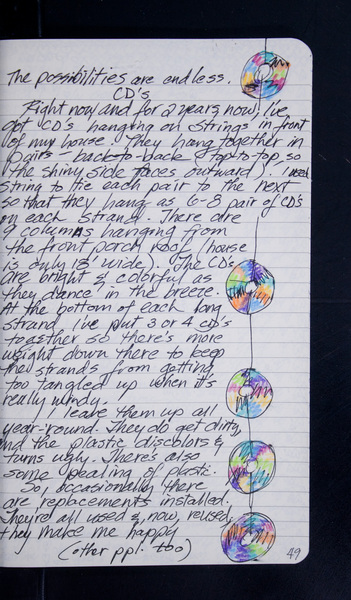 The possibilities are endless.
CD's
Right now and for 2 years now, I've
got CD's hanging on strings in front
of my house. They hang together in
pairs - back-to-back (top-to-top, so
the shiny side faces outward). I used
string to tie each pair to the next
so that they hang as 6-8 pair of CD's
on each strand. There are
9 columns hanging from
the front porch roof (house
is only 18' wide). The CD's
are bright & colorful as
they dance in the breeze.
At the bottom of each long
strand, I've put 3 or 4 cd's
together so there's more
weight down there to keep
the strands from getting
too tangled up when it's
really windy.
I leave them up all
year-round. They do get dirty,
and the plastic discolors &
turns ugly. There's also
some pealing of plastic.
So, occasionally there
are replacements installed.
They're all used &, now, reused;
they make me happy
(other ppl. too)
49